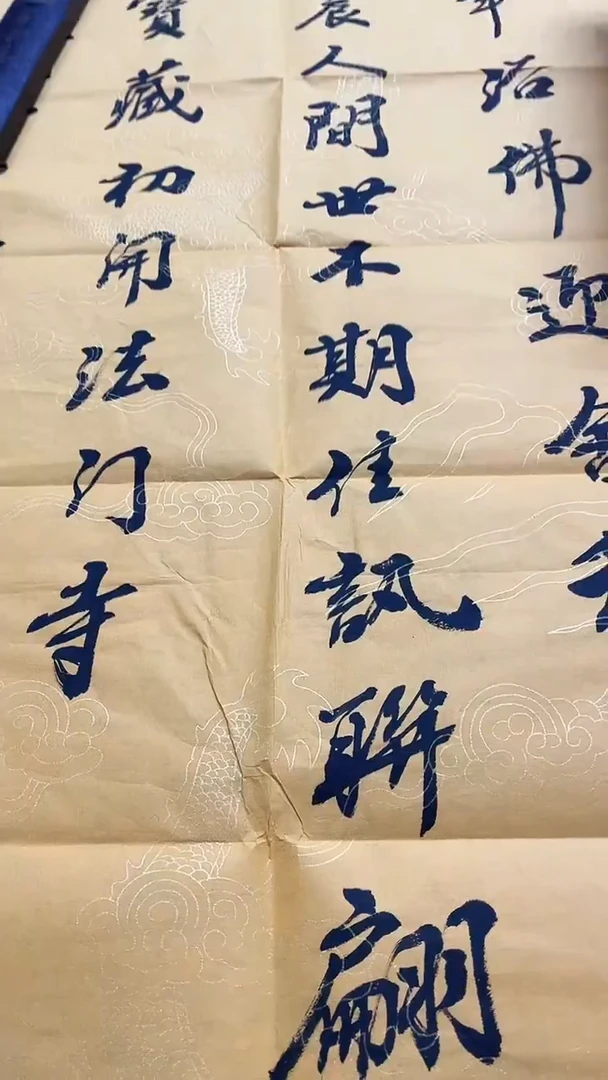 浴佛迎
人間世不期佳訊聯翩
寶藏初開法门寺